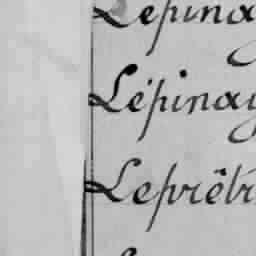 Lepina
Lépinay
Leprêtr